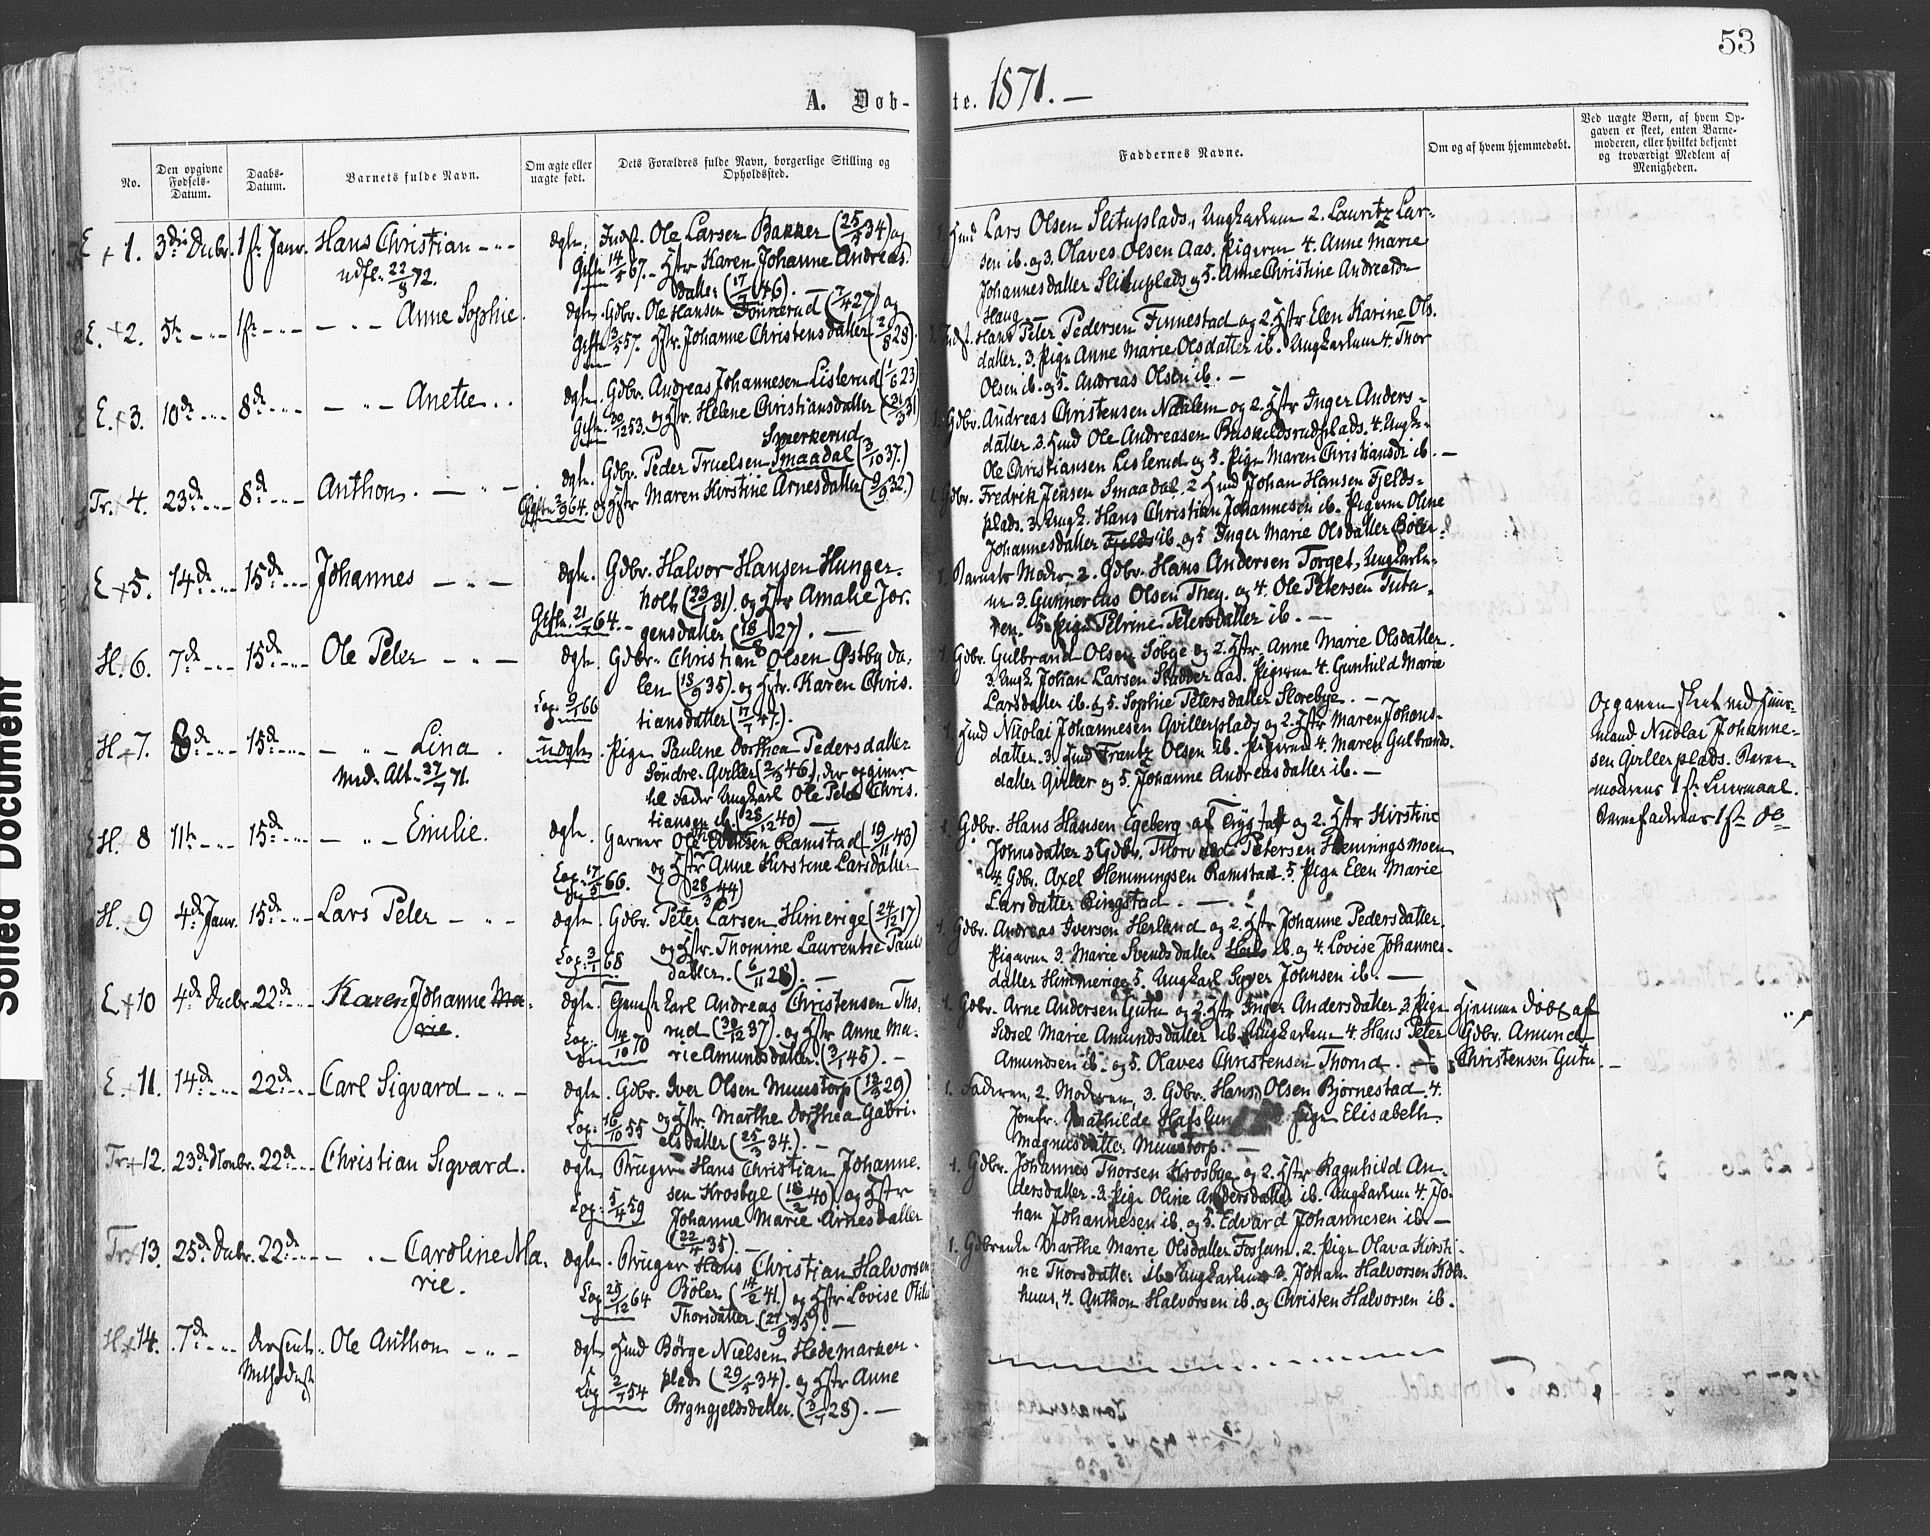 53
A. Døb-
te. 1871. —
No.
Den opgivne
Fødsels-
Datum.
Daabs-
Datum.
Barnets fulde Navn.
Om ægte eller
uægte født.
Dets Forældres fulde Navn, borgerlige Stilling og
Opholdssted.
Faddernes Navne.
Om og af hvem hjemmedøbt.
Ved uægte Børn, af hvem Op-
gaven er skeet, enten Barne-
moderen, eller hvilket bekjendt
og troværdigt Medlem af
Menigheden.
E + 1. 3die Decbr. 1ste Janr. Hans Christian
udfl. 22/8 72.
ægte. Indst. Ole Larsen Bakker (25/5 34) og
Gift 14/5 67. Hstr Karen Johanne Andreas-
datter (17/7 46).
1. Hmd Lars Olsen Slituplads, Ungkarlene 2. Lauritz Lar-
sen ib. og 3. Olaves Olsen Aas. Pigerne 4. Anne Marie
Johannesdatter Slituplads og 5. Anne Christine Andreasdr
Haug.
E. + 2. 5te 1ste Anne Sophie.
ægte. Gdbr. Ole Hansen Sønnerud (7/4 27) og
Gift 3/5 57. Hstr. Johanne Christensdatter (2/8 29).
1. Indst. Hans Peter Pedersen Finnestad og 2. Hstr Elen Karine Ols-
datter. 3. Pige Anne Marie Olsdatter ib. Ungkarlene 4. Thor
Olsen ib. og 5. Andreas Olsen ib. —
E. + 3. 10de 8de Anette
ægte. Gdbr. Andreas Johannesen Lislerud (1/6 23)
Gift 30/12 53. og Hstr. Helene Christiansdatter (31/3 31)
1. Gdbr. Andreas Christensen Naalem og 2. Hstr Inger Anders-
datter. 3. Hmd Ole Andreasen Buskildsrudplads. 4. Ungk.
Ole Christiansen Lislerud og 5. Pige Maren Christiansdr ib. —
Tr. + 4. 23de 8de Anthon.
Smerkerud
ægte. Gdbr. Peder Truelsen Smaadal (3/10 37.)
Gift 3/9 64. og Hstr Maren Kirstine Arnesdatter (9/9 32.)
1. Gdbr. Fredrik Jensen Smaadal. 2. Hmd Johan Hansen Fjelds-
plads. 3. Ungk. Hans Christian Johannesen ib. Pigerne Oline
Johannesdatter Fjelds ib. og 5. Inger Marie Olsdatter Bøler.
E + 5. 14de 15de Johannes
ægte. Gdbr. Halvor Hansen Hunger-
holt (23/1 31). og Hstr Amalie Jør-
Gift 21/7 64. gensdatter (18/8 27).
1. Barnets Moder, 2. Gdbr. Hans Andersen Torget, Ungkarle-
ne 3. Gunnerius Olsen They. og 4. Ole Petersen Tuta-
ren. 5. Pige Petrine Petersdatter ib. —
H. + 6. 7de 15de Ole Peter
ægte. Gdbr. Christian Olsen Østbyda-
len (18/9 35). og Hstr. Karen Chris-
Cop. 9/1 66 tiansdatter (17/1 47.)
1. Gdbr. Gulbrand Olsen Søbye og 2. Hstr. Anne Marie Olsdatter.
3. Ungk Johan Larsen Skadder aas. Pigerne 4. Gunhild Marie
Larsdatter ib. og 5. Sophie Petersdatter Storebye. —
H. + 7. 8de 15de Lina
Med. Alt. 37/7 71.
uægte. Pige Pauline Dorthea Pedersdatter
Søndre Gviller (2/5 46), der opgiver
til Fader Ungkarl Ole Peter Chris-
tiansen ib. (28/12 40) —
1. Hmd Nicolai Johannesen Gvillerplads og 2. Hstr Maren Johans-
datter. 3. Hmd Frantz Olsen ib. Pigerne 4. Maren Gulbrands-
datter Gviller og 5. Johanne Andreasdatter ib. —
Opgaven skeet ved Huus-
mand Nicolai Johanne-
sen Gvillerplads. Barne-
moderens 1ste Leiermaal.
Barnefaderens 1ste do
H. 8 11te 15de Emilie.
ægte. Garver Ole Evensen Ramstad (19/11 43)
Cop. 17/5 66. og Hstr Anne Kirstene Larsdatter
(28/3 44)
1. Gdbr. Hans Hansen Egeberg af Trygstad og 2. Hstr Kirstine
Johnsdatter 3 Gdbr. Thorvald Petersen Hemningsmoen
4. Gdbr. Axel Hemmingsen Ramstad. 5. Pige Elen Marie
Larsdatter Ringstad. —
H. 9 4de Janr. 15de Lars Peter
ægte. Gdbr. Peter Larsen Himerige (24/12 17)
Cop. 3/1 68 og Hstr. Thomine Laurentze Pauls
datter. (6/11 28). —
1. Gdbr. Andreas Iversen Herland og 2. Hstr Johanne Pedersdatter.
Pigerne 3. Marie Svendsdatter ib. og 4. Lovise Johannes-
datter Himmerige 5. Ungkarl Syver Johnsen ib. —
E + 10 4de Decbr 22de Karen Johanne Ma-
rie.
ægte. Gdmstr Carl Andreas Christensen Tho-
rud (30/12 37). og Hstr Anne Ma-
Cop. 14/10 70 rie Amundsdatter (3/1 45). —
1. Gdbr. Arne Andersen Gutu og 2. Hstr Inger Andersdatter 3. Pige
Sidsel Marie Amundsdatter ib. Ungkarlene 4. Hans Peter
Amundsen ib. og 5. Olaves Christensen Thorud.
Hjemme døbt af
Gdbr. Amund
Christensen Gutu.
E. + 11. 14de 22de Carl Sigvard
ægte. Gdbr. Iver Olsen Muustorp (12/3 29)
Cop. 16/10 55 og Hstr. Marthe Dorthea Gabri-
elsdatter (25/3 34.) —
1. Faderen, 2. Moderen, 3. Gdbr. Hans Olsen Bjørnestad. 4.
Jomfr. Mathilde Hafslun Pige Elisabeth
Magnusdatter Muustorp. —
Tr. + 12. 23de Novbr. 22de Christian Sigvard.
ægte Bruger Hans Christian Johanne-
sen Krosbye (18/2 40) og Hstr
Cop. 5/4 59 Johanne Marie Arnesdatter
(22/4 35). —
1. Gdbr. Johannes Thorsen Krosbye og 2. Hstr Ragnhild An-
dersdatter. 3. Pige Oline Andersdatter ib. Ungkarlene 4. Jo-
han Johannesen ib. og 5. Edvard Johannesen ib. —
Tr. + 13. 25de Decbr. 22de Caroline Ma-
rie.
ægte. Bruger Hans Christian Halvorsen
Cop 29/12 64 Bøler (14/2 41.) og Hstr Lovise Otilie
Thorsdatter (21/9 35). —
1. Gdbrenke Marthe Marie Olsdatter Fossum. 2. Pige Olava Kirsti-
ne Thorsdatter ib. Ungkarlene 3. Johan Halvorsen Kols-
huus, 4. Anthon Halvorsen ib. og Christen Halvorsen ib.
H + 14. 7de Ole Anthon
ægte Hmd Børge Nielsen Hedemarken-
Cop 2/7 54 plads (29/5 34). og Hstr Anne
Bryngjeldsdatter. (3/1 28). —
Solied Document